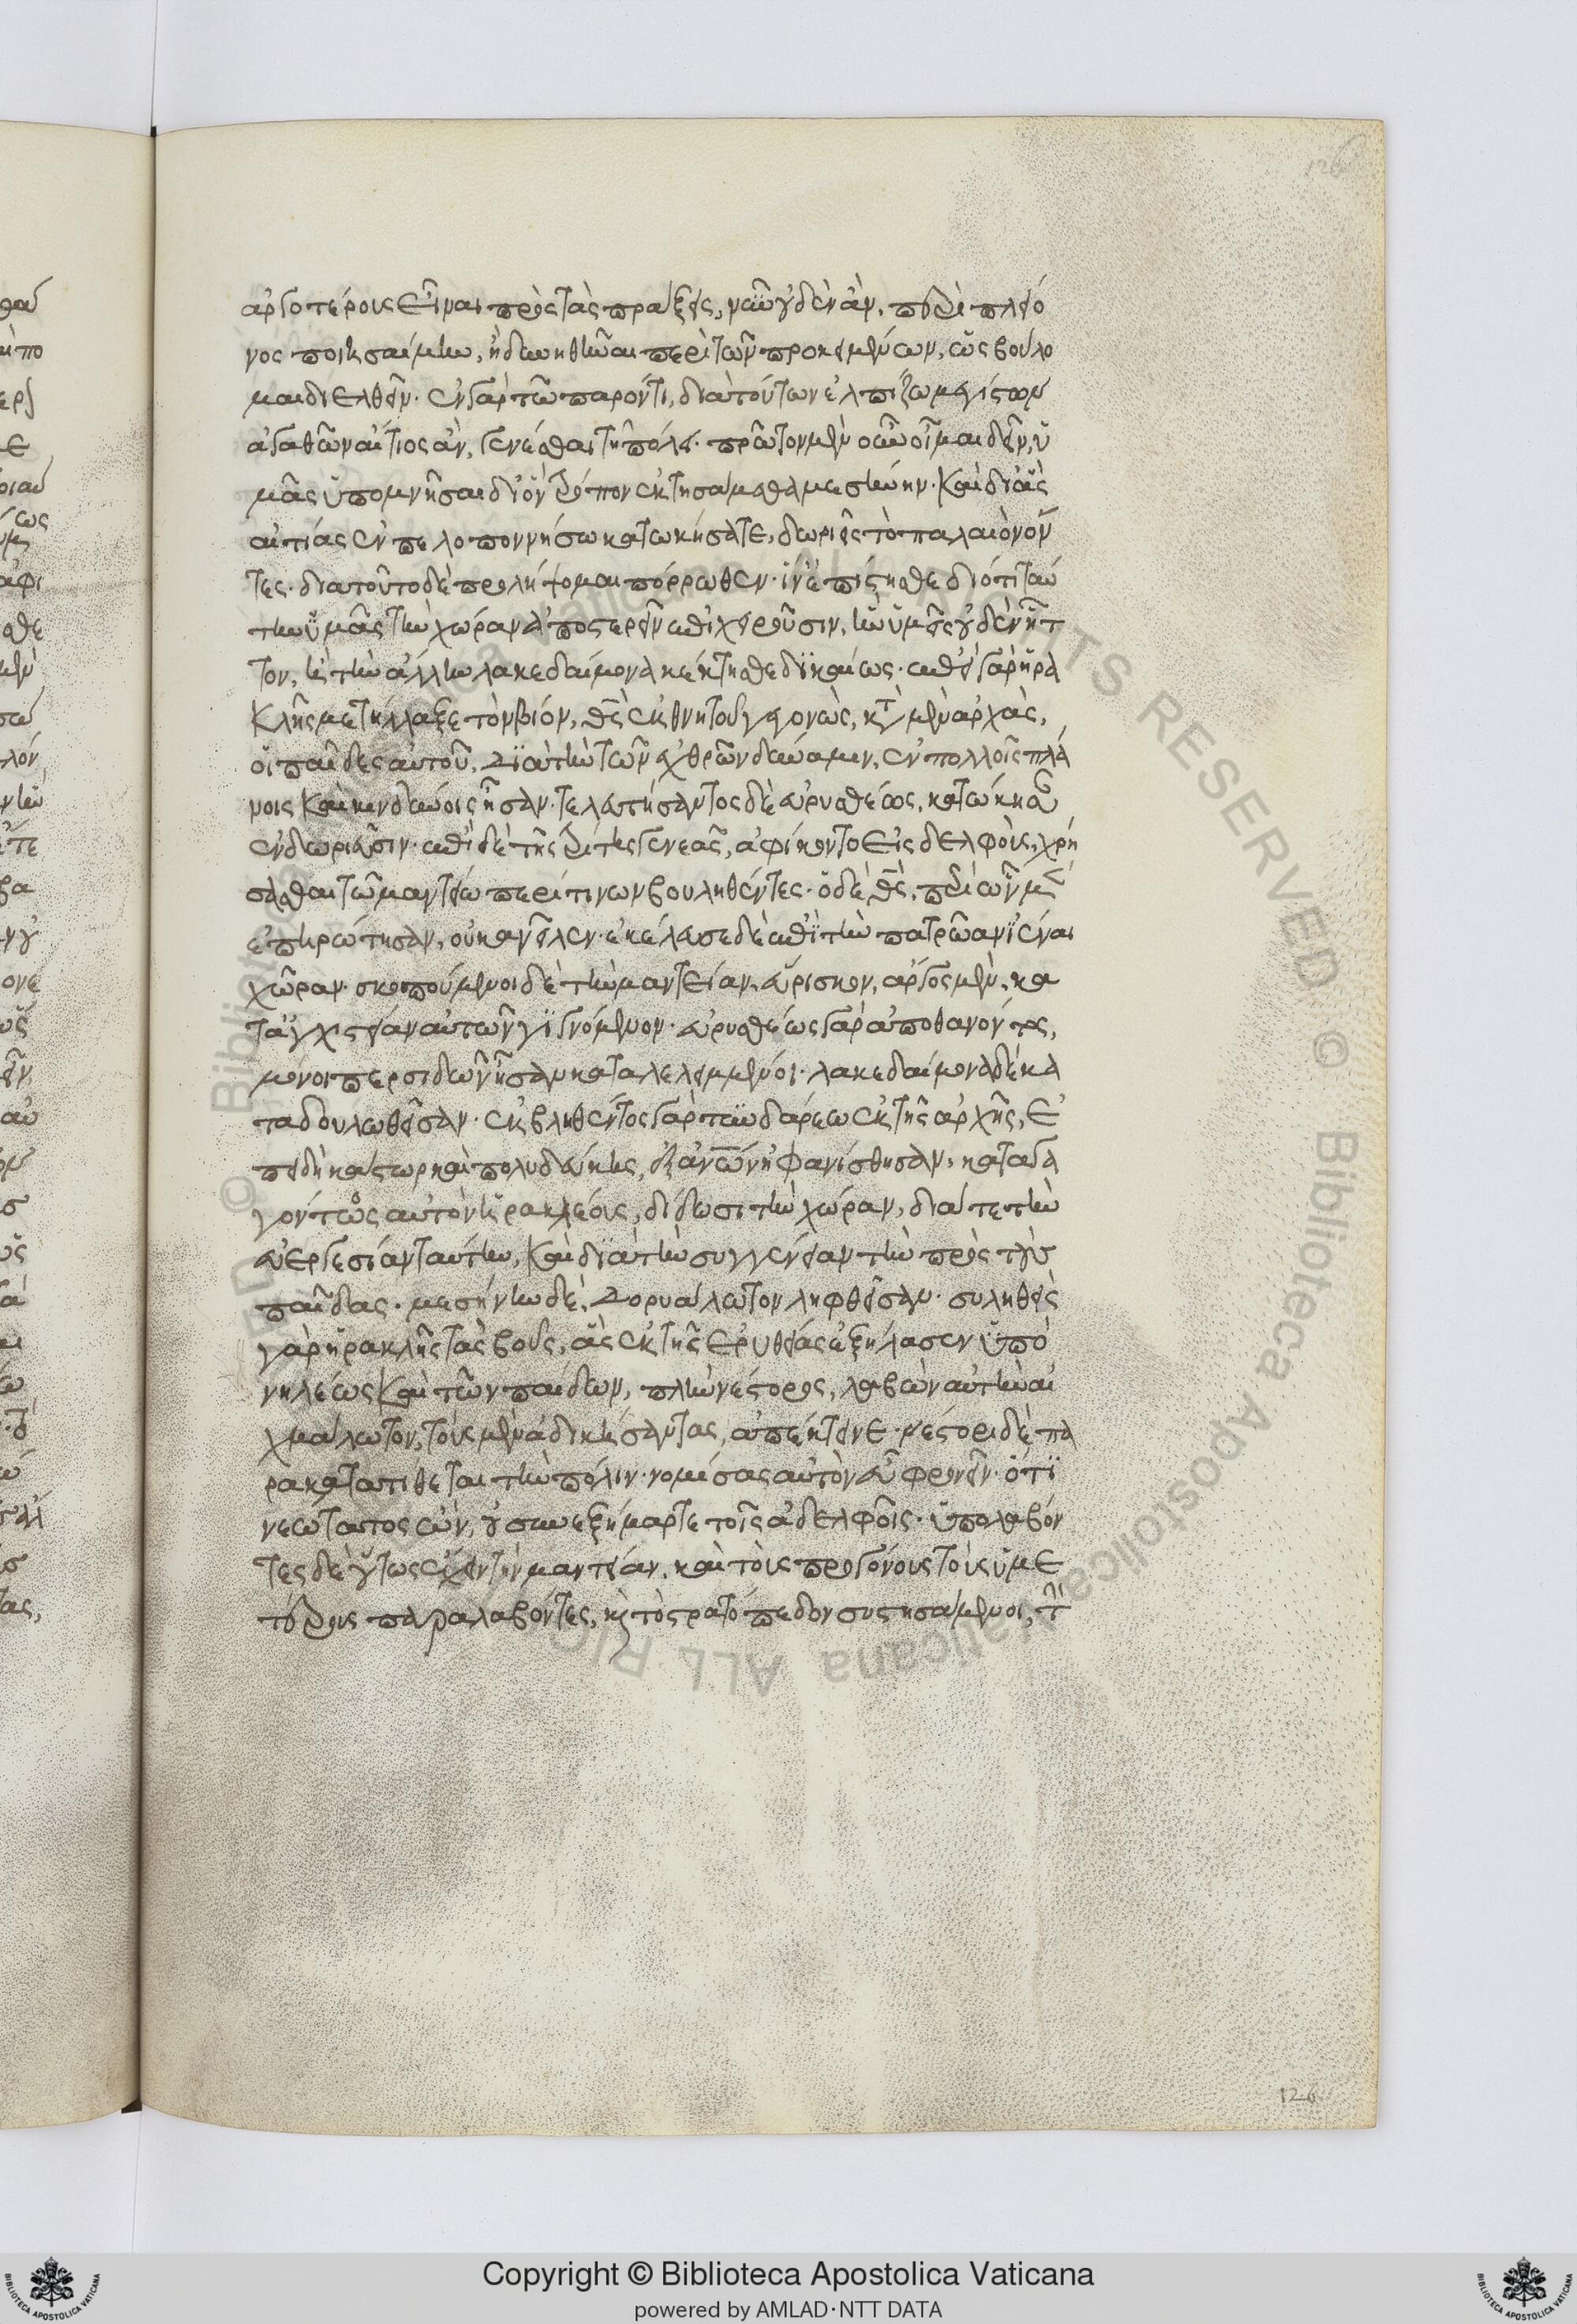 ἀργοτέρους εἶναι πρὸς τὰς πράξεις, νῦν οὐδὲν ἂν, περὶ πλείο
νος ποιησαίμην, ἢ δυνηθῆναι περὶ τῶν προκειμένων, ὡς βούλο
μαι διελθεῖν· ἐν γὰρ τῶ παρόντι, διὰ τούτων ἐλπίζω μεγίστων
ἀγαθῶν αἴτιος ἂν, γενέσθαι τῆ πόλει· πρῶτον μὲν οὖν οἶμαι δεῖν, ὑ
μᾶς ὑπομνῆσαι δι' ὃν τρόπον ἐκτησάμεθα μεσήνην· καὶ δι' ἃς
αἰτίας ἐν πελοποννήσω κατωκήσατε, δωριεῖς τὸ παλαιὸν ὄν
τες· διὰ τοῦτο δὲ προλήψομαι πόρρωθεν· ἵν' ἐπίστησθε διότι ταύ
την ὑμᾶς τὴν χώραν ἀποστερεῖν ἐπιχειροῦσιν, ἣν ὑμεῖς οὐδὲν ἧτ
τον, ἢ τὴν ἄλλην λακεδαίμονα κέκτησθε δικαίως· ἐπεὶ γὰρ ἡρα
κλῆς μετήλλαξε τὸν βίον, θεὸς ἐκ θνητοῦ γεγονὼς, κατὰ μὲν ἀρχὰς,
οἱ παῖδες αὐτοῦ, διὰ τὴν τῶν ἐχθρῶν δύναμιν, ἐν πολλοῖς πλά
νοις καὶ κινδύνοις ἦσαν· τελευτήσαντος δὲ εὐρυσθέως, κατώκησαν
ἐν δωριεῦσιν· ἐπὶ δὲ τῆς τρίτης γενεᾶς, ἀφίκοντο εἰς δελφοὺς, χρή
σασθαι τῶ μαντείω περί τινων βουληθέντες· ὁ δὲ θεὸς, περὶ ὧν μὲν
ἐπηρώτησαν, οὐκ ἀνεῖλεν· ἐκέλευσε δὲ ἐπὶ τὴν πατρώαν ἰέναι
χώραν· σκοπούμενοι δὲ τὴν μαντείαν, εὕρισκον, ἄργος μὲν, κα
τ' ἀγχιστείαν αὐτῶν γιγνόμενον· εὐρυσθέως γὰρ ἀποθανόντος,
μόνοι περσιδῶν ἦσαν καταλελειμμένοι· λακεδαίμονα δὲ κα
ταδουλωθεῖσαν· ἐκβληθέντος γὰρ τυνδάρεω ἐκ τῆς ἀρχῆς, ἐ
πειδὴ κάστωρ καὶ πολυδεύκης, ἐξ ἀνθρώπων ἠφανίσθησαν, καταγα
γόντος αὐτὸν ἡρακλέους, δίδωσι τὴν χώραν, διά τε τὴν
εὐεργεσίαν ταύτην, καὶ διὰ τὴν συγγένειαν τὴν πρὸς τοὺς
παῖδας· μεσήνην δὲ, δορυάλωτον ληφθεῖσαν· συληθεὶς
γὰρ ἡρακλῆς τὰς βοῦς, ἃς ἐκ τῆς ἐρυθείας ἐξήλασεν ὑπὸ
νηλέως καὶ τῶν παίδων, πλὴν νέστορος, λαβὼν αὐτὴν αἰ
χμάλωτον, τοὺς μὲν ἀδικήσαντας, ἀπέκτεινε· νέστορι δὲ πα
ρακατατίθεται τὴν πόλιν· νομίσας αὐτὸν εὖ φρονεῖν· ὅτι
νεώτατος ὢν, οὐ συνεξήμαρτε τοῖς ἀδελφοῖς· ὑπολαβόν
τες δὲ οὕτως ἔχειν τὴν μαντείαν, καὶ τοὺς προγόνους τοὺς ὑμε
τέρους παραλαβόντες, καὶ τὸ στρατόπεδον συστησάμενοι, τὴν